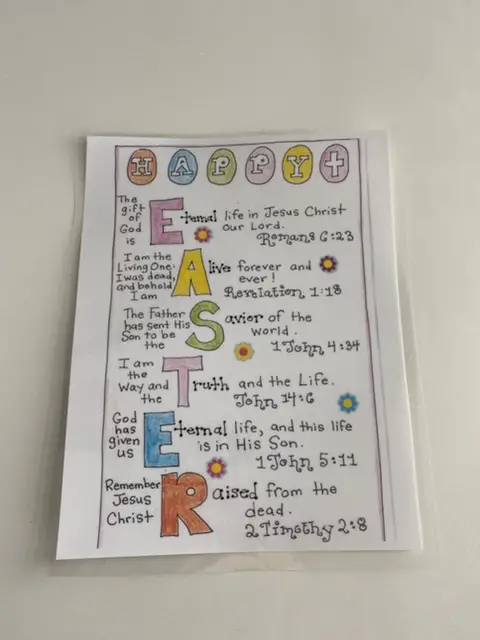 HAPPY✝
The gift of God is Eternal life in Jesus Christ our Lord.
Romans 6:23
I am the Living One; I was dead, and behold I am Alive forever and ever!
Revelation 1:18
The Father has sent His Son to be the Savior of the world.
1 John 4:34
I am the Way and the Truth and the Life.
John 14:6
God has given us Eternal life, and this life is in His Son.
1 John 5:11
Remember Jesus Christ Raised from the dead.
2 Timothy 2:8